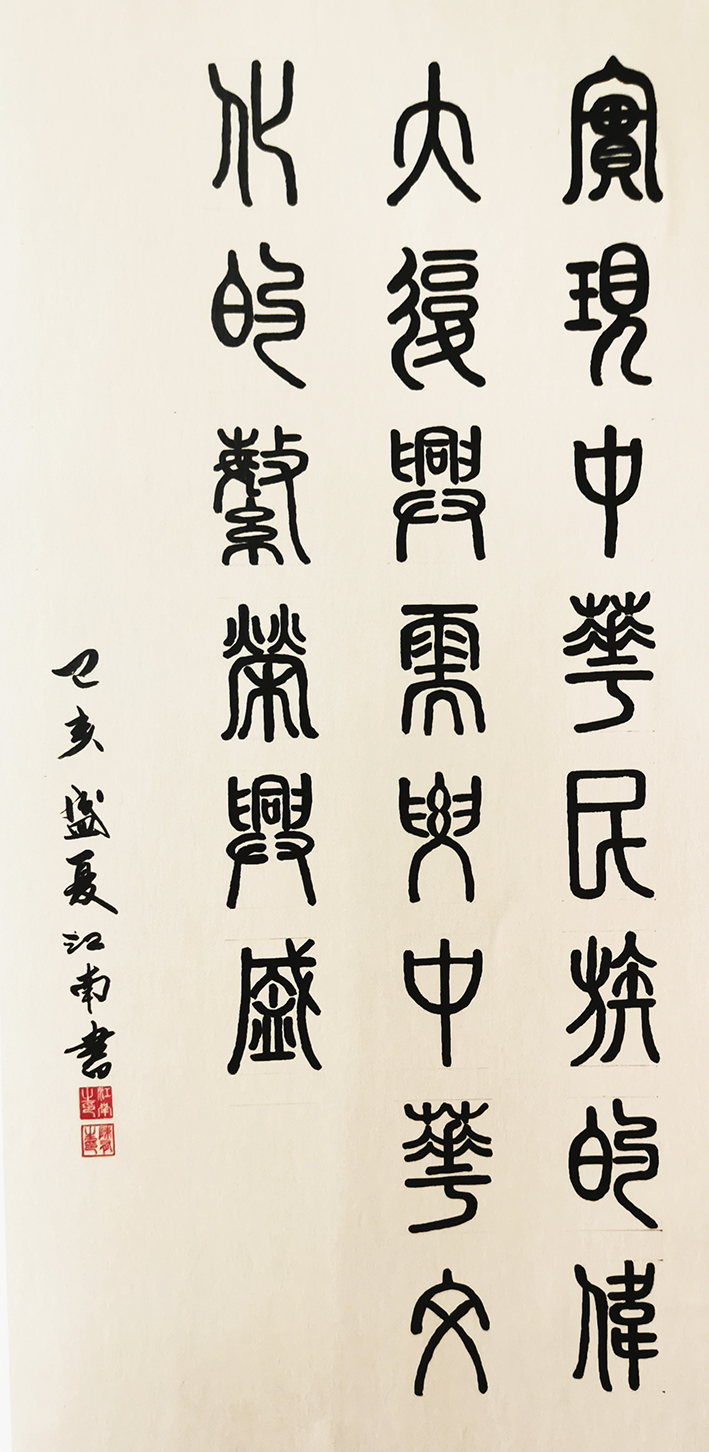 實現中華民族的偉
大復興需要中華文
化的繁榮興盛
己亥盛夏江南書